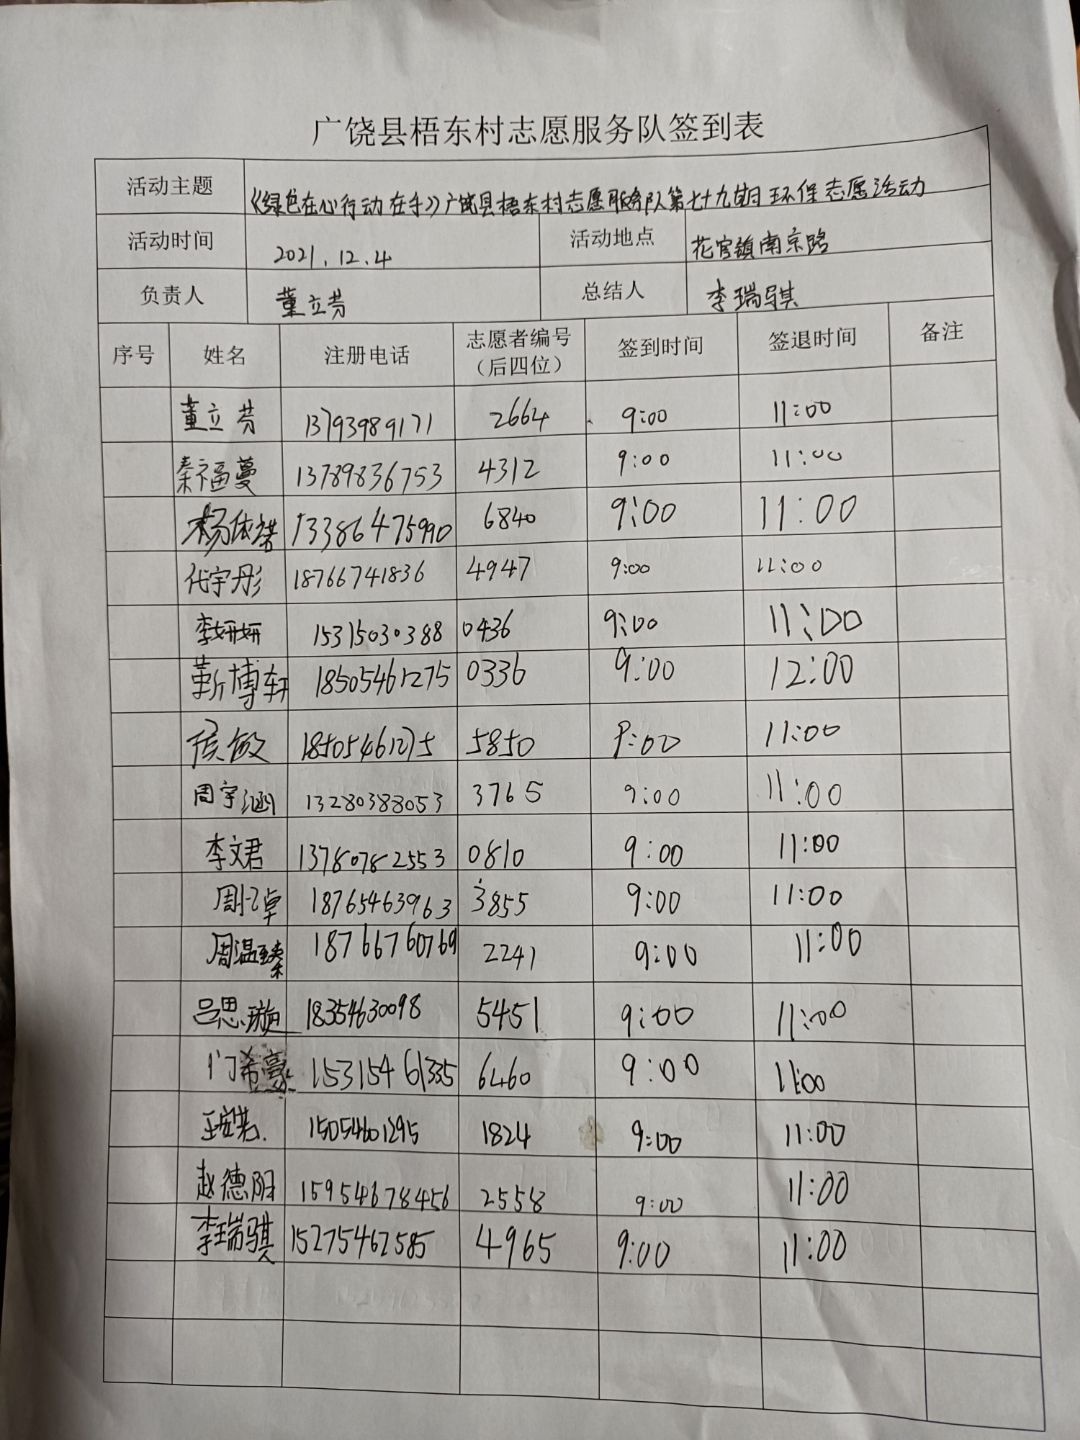 广饶县梧东村志愿服务队签到表
活动主题 《绿色在心行动在手》广饶县梧东村志愿服务队第七十九期环保志愿活动
活动时间 2021.12.4 活动地点 花官镇南京路
负责人 董立芬 总结人 李瑞骐
序号 姓名 注册电话 志愿者编号（后四位） 签到时间 签退时间 备注
董立芬 13793989171 2664 9:00 11:00
秦福蔓 13789836753 4312 9:00 11:00
杨依诺 13386475990 6840 9:00 11:00
代宇彤 18766741836 4947 9:00 11:00
李妍妍 15315030388 0436 9:00 11:00
靳博轩 18505461275 0336 9:00 12:00
18505461275 5850 9:00 11:00
周宇涵 13280388053 3765 9:00 11:00
李文君 13780782553 0810 9:00 11:00
18765463963 3855 9:00 11:00
周温臻 18766760769 2241 9:00 11:00
吕思璇 18354630098 5451 9:00 11:00
门希豪 15315461335 6460 9:00 11:00
15054601295 1824 9:00 11:00
赵德阳 15954678456 2558 9:00 11:00
李瑞骐 15275462585 4965 9:00 11:00